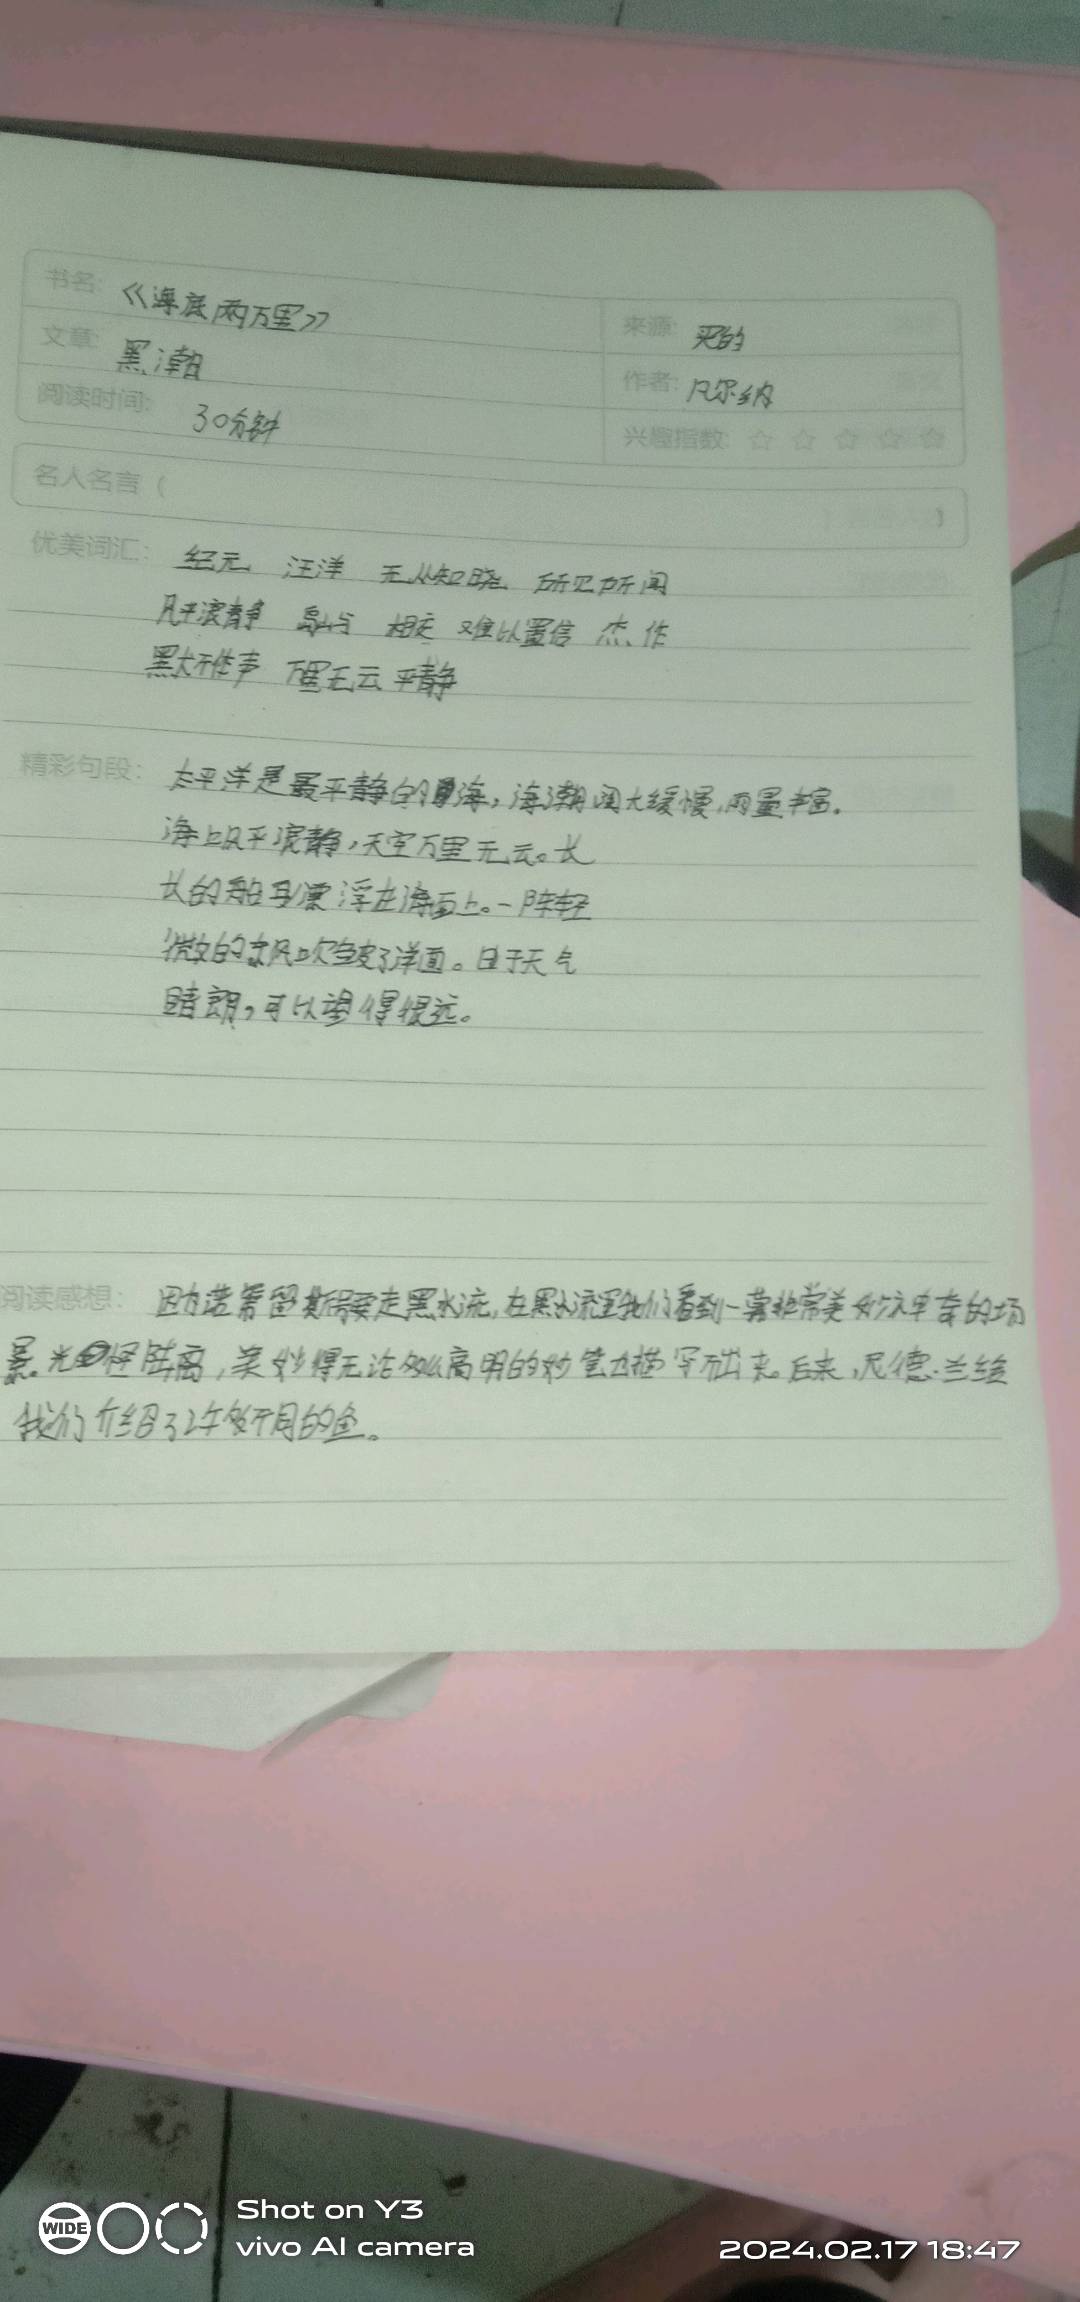 书名: 《海底两万里》
来源: 买的
文章: 黑潮
作者: 凡尔纳
阅读时间: 30分钟
兴趣指数: ☆ ☆ ☆ ☆ ☆
名人名言 ( )
优美词汇: 纪元 汪洋 无从知晓 所见所闻
风平浪静 岛屿 相交 难以置信 杰作
默不作声 万里无云 平静
精彩句段: 太平洋是最平静的海,海潮阔大缓慢,雨量丰富.
海上风平浪静,天空万里无云。长
长的船身漂浮在海面上。一阵轻
微的东风吹皱了洋面。由于天气
晴朗,可以望得很远。
阅读感想: 因为诺第留斯号要走黑水流,在黑水流里我们看到一幕非常美妙神奇的场
景。光怪陆离,美妙得无论多么高明的妙笔也描写不出来。后来,尼德·兰给
我们介绍了许多不同的鱼。
WIDE
Shot on Y3
vivo AI camera
2024.02.17 18:47